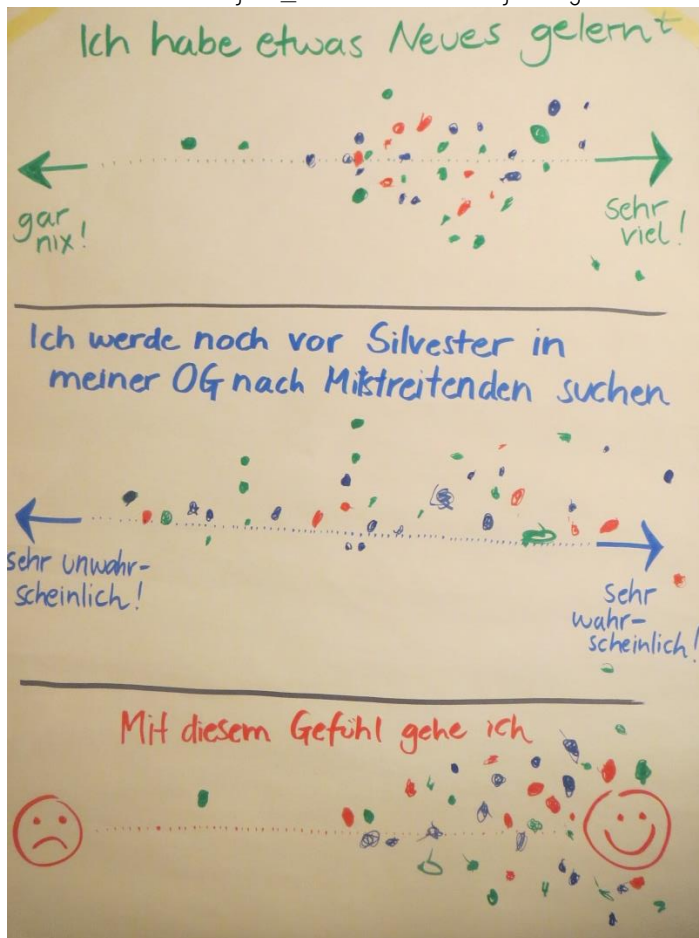 Ich habe etwas Neues gelernt
gar
nix!
sehr
viel!
Ich werde noch vor Silvester in
meiner OG nach Mitstreitenden suchen
sehr unwahr-
scheinlich!
sehr
wahr-
scheinlich!
Mit diesem Gefühl gehe ich